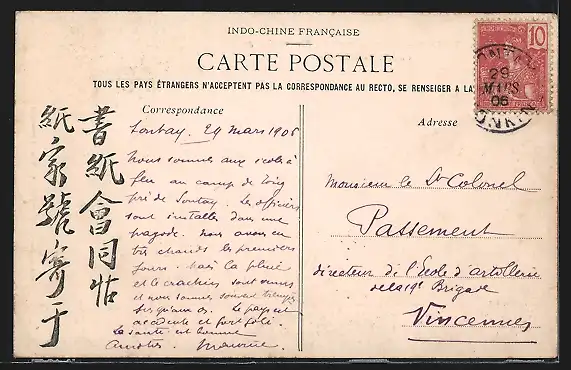 INDO-CHINE FRANÇAISE
CARTE POSTALE
TOUS LES PAYS ÉTRANGERS N'ACCEPTENT PAS LA CORRESPONDANCE AU RECTO, SE RENSEIGER A LA
10
29
MARS
06
Correspondance
Sontay. 29 mars 1906
Nous sommes aux écoles à
feu au camp de
près de Sontay. Les officiers
sont installés dans une
pagode. Nous avons eu
très chaud les premiers
jours. mais la pluie
et le crachin sont venus
et nous sommes souvent trempés
jusqu'aux os. Le pays est
accidenté et fort joli.
La santé est bonne
Amitiés.
書紙會同帖
紙家號寄于
Adresse
Monsieur le Lt Colonel
Passement
directeur de l'École d'artillerie
de la 19e Brigade
Vincennes